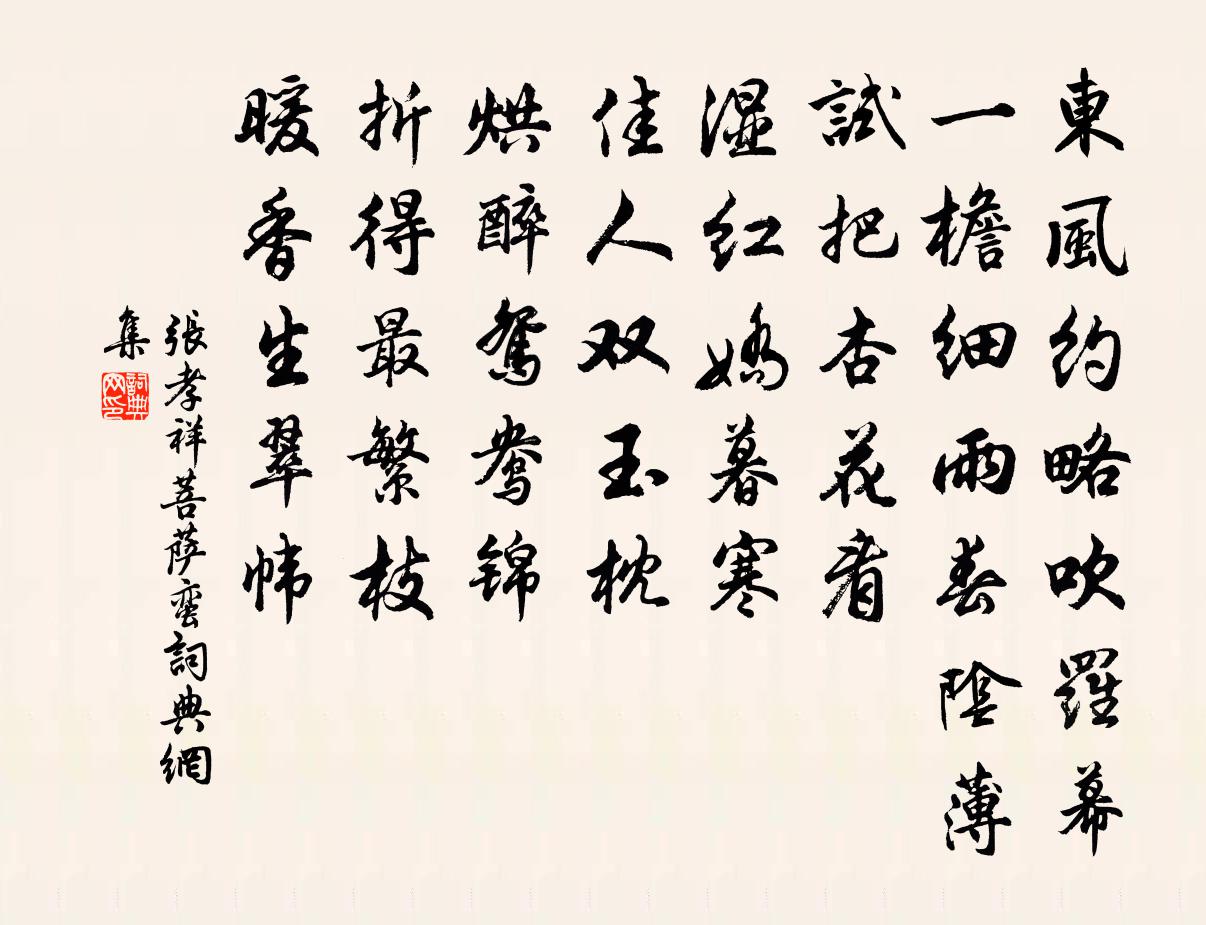 東風約略吹羅幕
一檐細雨春陰薄
試把杏花看
湿红嬌暮寒
佳人双玉枕
烘醉鴛鴦锦
折得最繁枝
暖香生翠帏
張孝祥菩萨蛮詞典網
集
詞典
网印